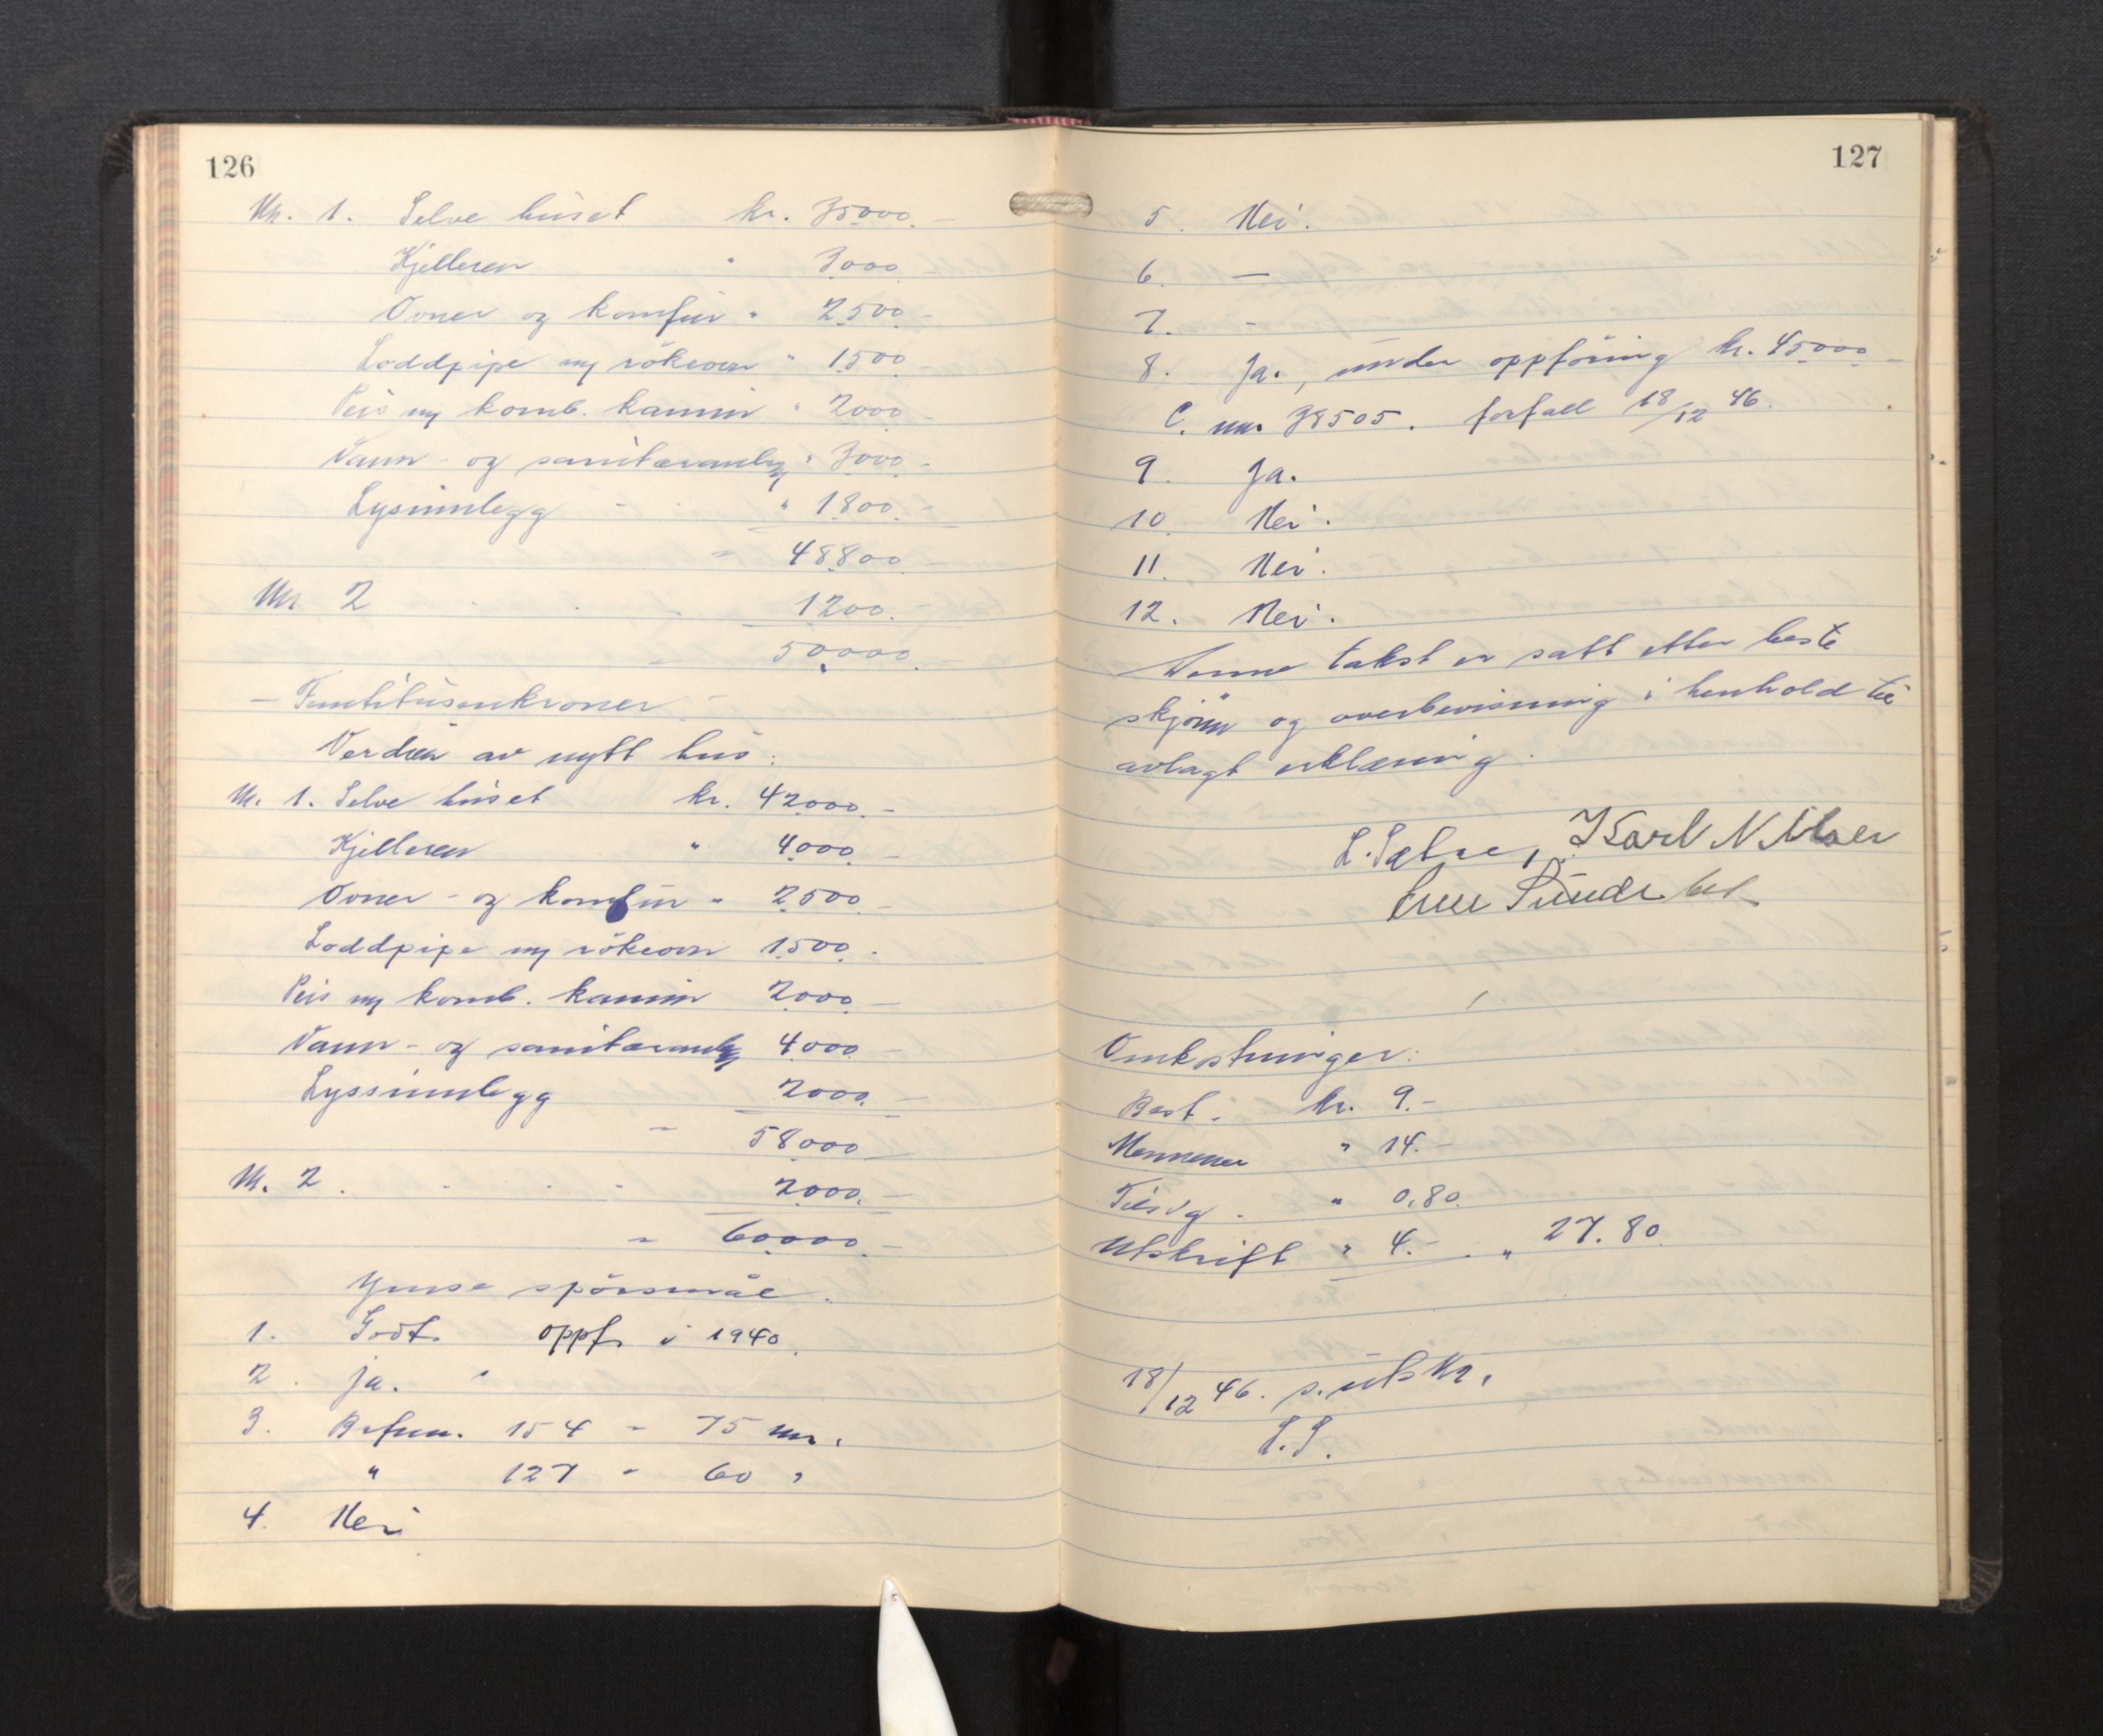 126
Nr. 1. Selve huset kr. 35000.-
Kjelleren " 3000.-
Ovner og komfur " 2500.-
Loddpipe m/ rökeovn " 1500.-
Peis m/ komb. kamin " 2000.-
Vann- og sanitæranlegg " 3000.-
Lysinnlegg - " 1800.-
" 48800.-
Nr 2 - - - 1200.-
" 50000.-
- Femtitusenkroner -
Verdien av nytt hus:
Nr. 1. Selve huset kr. 42000.-
Kjelleren " 4000.-
Ovner - og komfur " 2500.-
Loddpipe m/ rökeovn 1500.-
Peis m/ komb. kamin 2000.-
Vann- og sanitæranlegg 4000.-
Lyssinnlegg 2000.-
" 58000
Nr. 2. - - - 2000.-
" 60000.-
Ymse spörsmål.
1. Godt. oppf. i 1940.
2. Ja.
3. Brfnr. 154 - 75 m.
" 127 - 60 "
4. Nei
127
5. Nei.
6. —
7. -
8. Ja., under oppföring kr. 45000.-
C. nr. 38505. forfall 18/12 46.
9. Ja.
10. Nei.
11. Nei.
12. Nei.
Denne takst er satt etter beste
skjönn og overbevisning i henhold til
avlagt erklæring.
L. Sælve, Karl N Moer
Omkostninger:
Best. kr. 9.-
Mennene " 14.-
Tilsyg. " 0,80.
Utskrift " 4.- . " 27.80.
18/12 46. s. utskr.
L.S.